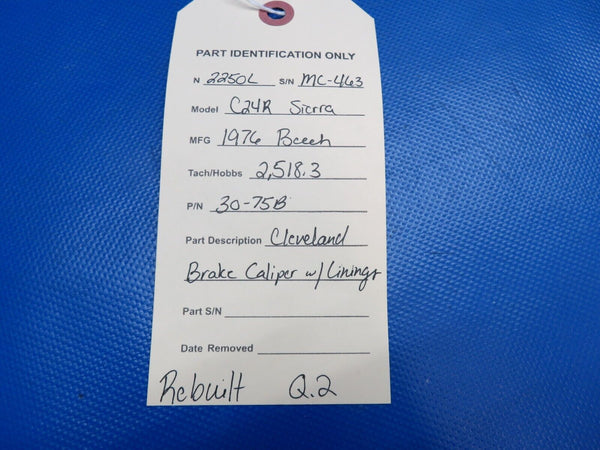 PART IDENTIFICATION ONLY
N 2250L S/N MC-463
Model C24R Sierra
MFG 1976 Beech
Tach/Hobbs 2,518.3
P/N 30-75B
Part Description Cleveland
Brake Caliper w/ Linings
Part S/N
Date Removed
Rebuilt Q.2